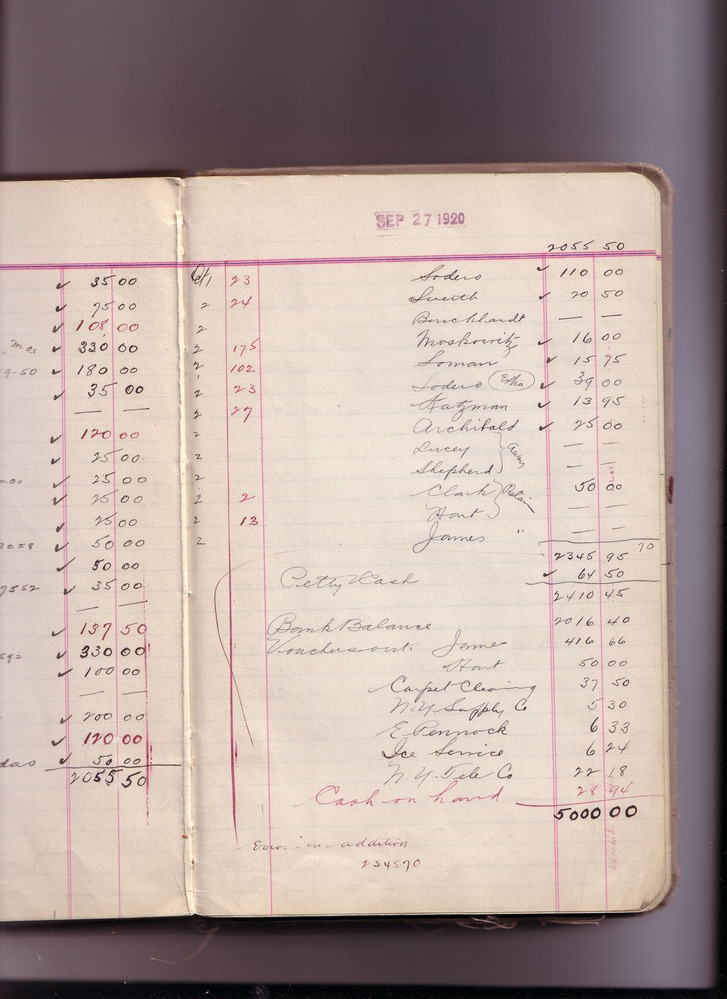 35 00
75 00
108 00
330 00
9-50 180 00
35 00
— —
120 00
25 00
25 00
25 00
25 00
3058 50 00
50 00
7552 35 00
— —
137 50
330 00
100 00
— —
200 00
120 00
50 00
2055 50
SEP 27 1920
2055 50
23 Sodero 110 00
2 24 20 50
2 Burckhardt — —
2 175 Moskowitz 16 00
2 102 Loman 15 75
2 23 Sodero Extra 39 00
2 27 Katzman 13 95
2 Archibald 25 00
2 Lucey Away — —
2 Shepherd — —
2 2 Clark Retain 50 00
2 13 Hart — —
2 James " — —
2345 95 70
Petty Cash 64 50
2410 45
Bank Balance 2016 40
Vouchers out. James 416 66
Hart 50 00
Carpet Cleaning 37 50
N.Y. Supply Co 5 30
E Pennock 6 33
Ice Service 6 24
N.Y. Tele Co 22 18
Cash on hand 28 94
5000 00
Error in addition
234570